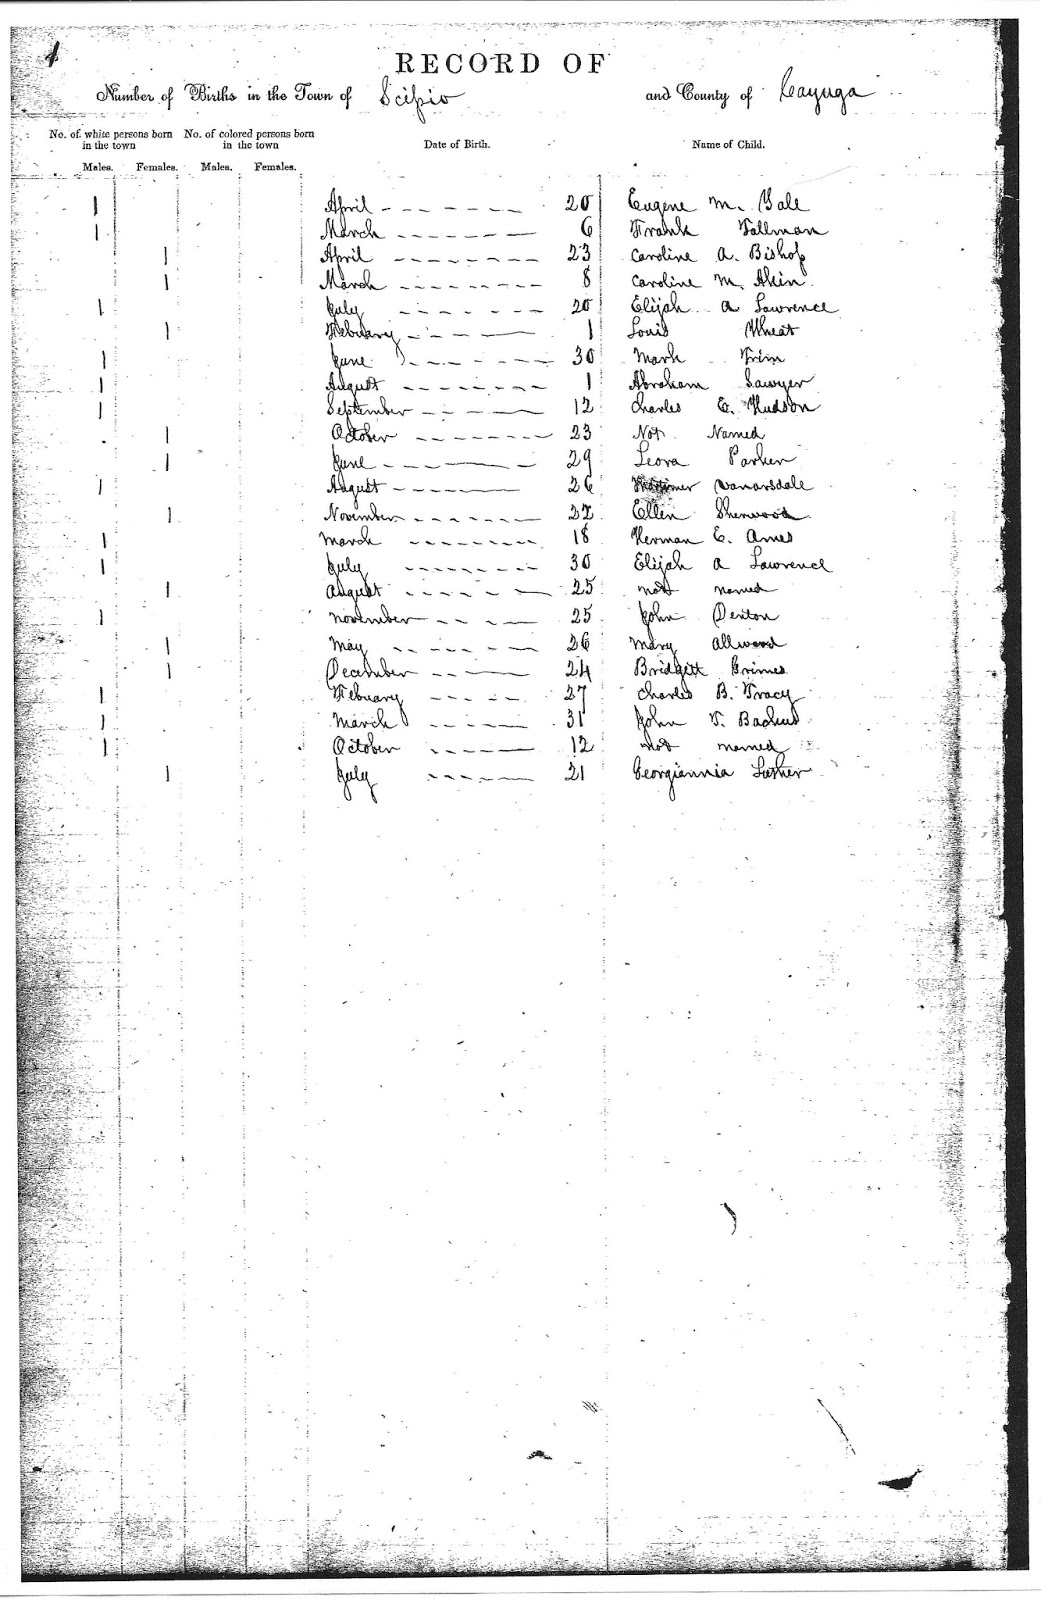 1
RECORD OF
Number of Births in the Town of Scipio and County of Cayuga
No. of white persons born in the town No. of colored persons born in the town Date of Birth. Name of Child.
Males. Females. Males. Females.
1 April 20 Eugene M. Gale
1 March 6 Frank Tallman
1 April 23 Caroline A. Bishop
1 March 8 Caroline M. Akin
1 July 20 Elijah A Lawrence
1 Febuary 1 Louis Wheat
1 June 30 Mark Trim
1 August 1 Abraham Sawyer
1 September 12 Charles E. Hudson
1 October 23 Not Named
1 June 29 Leora Parker
1 August 26 Mortimer Vanarsdale
1 November 22 Ellen Sherwood
1 March 18 Herman E. Ames
1 July 30 Elijah A Lawrence
1 August 25 not named
1 november 25 John Denton
1 May 26 Mary Allwood
1 December 24 Bridgett Grimes
1 Febuary 27 Charles B. Tracy
1 March 31 John T. Backus
1 October 12 not named
1 July 21 Georgiannia Luther